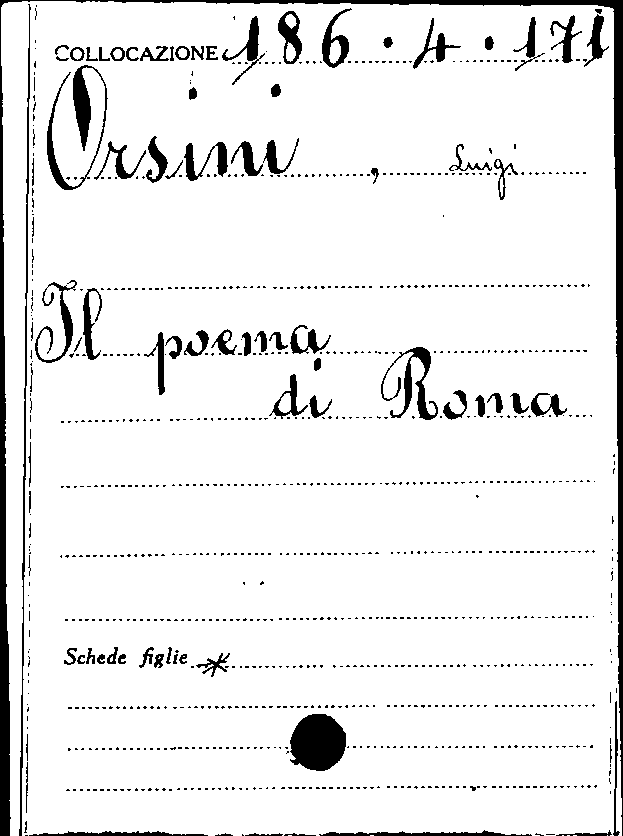 COLLOCAZIONE 186.4.171
Orsini, Luigi
Il poema
di Roma
Schede figlie *